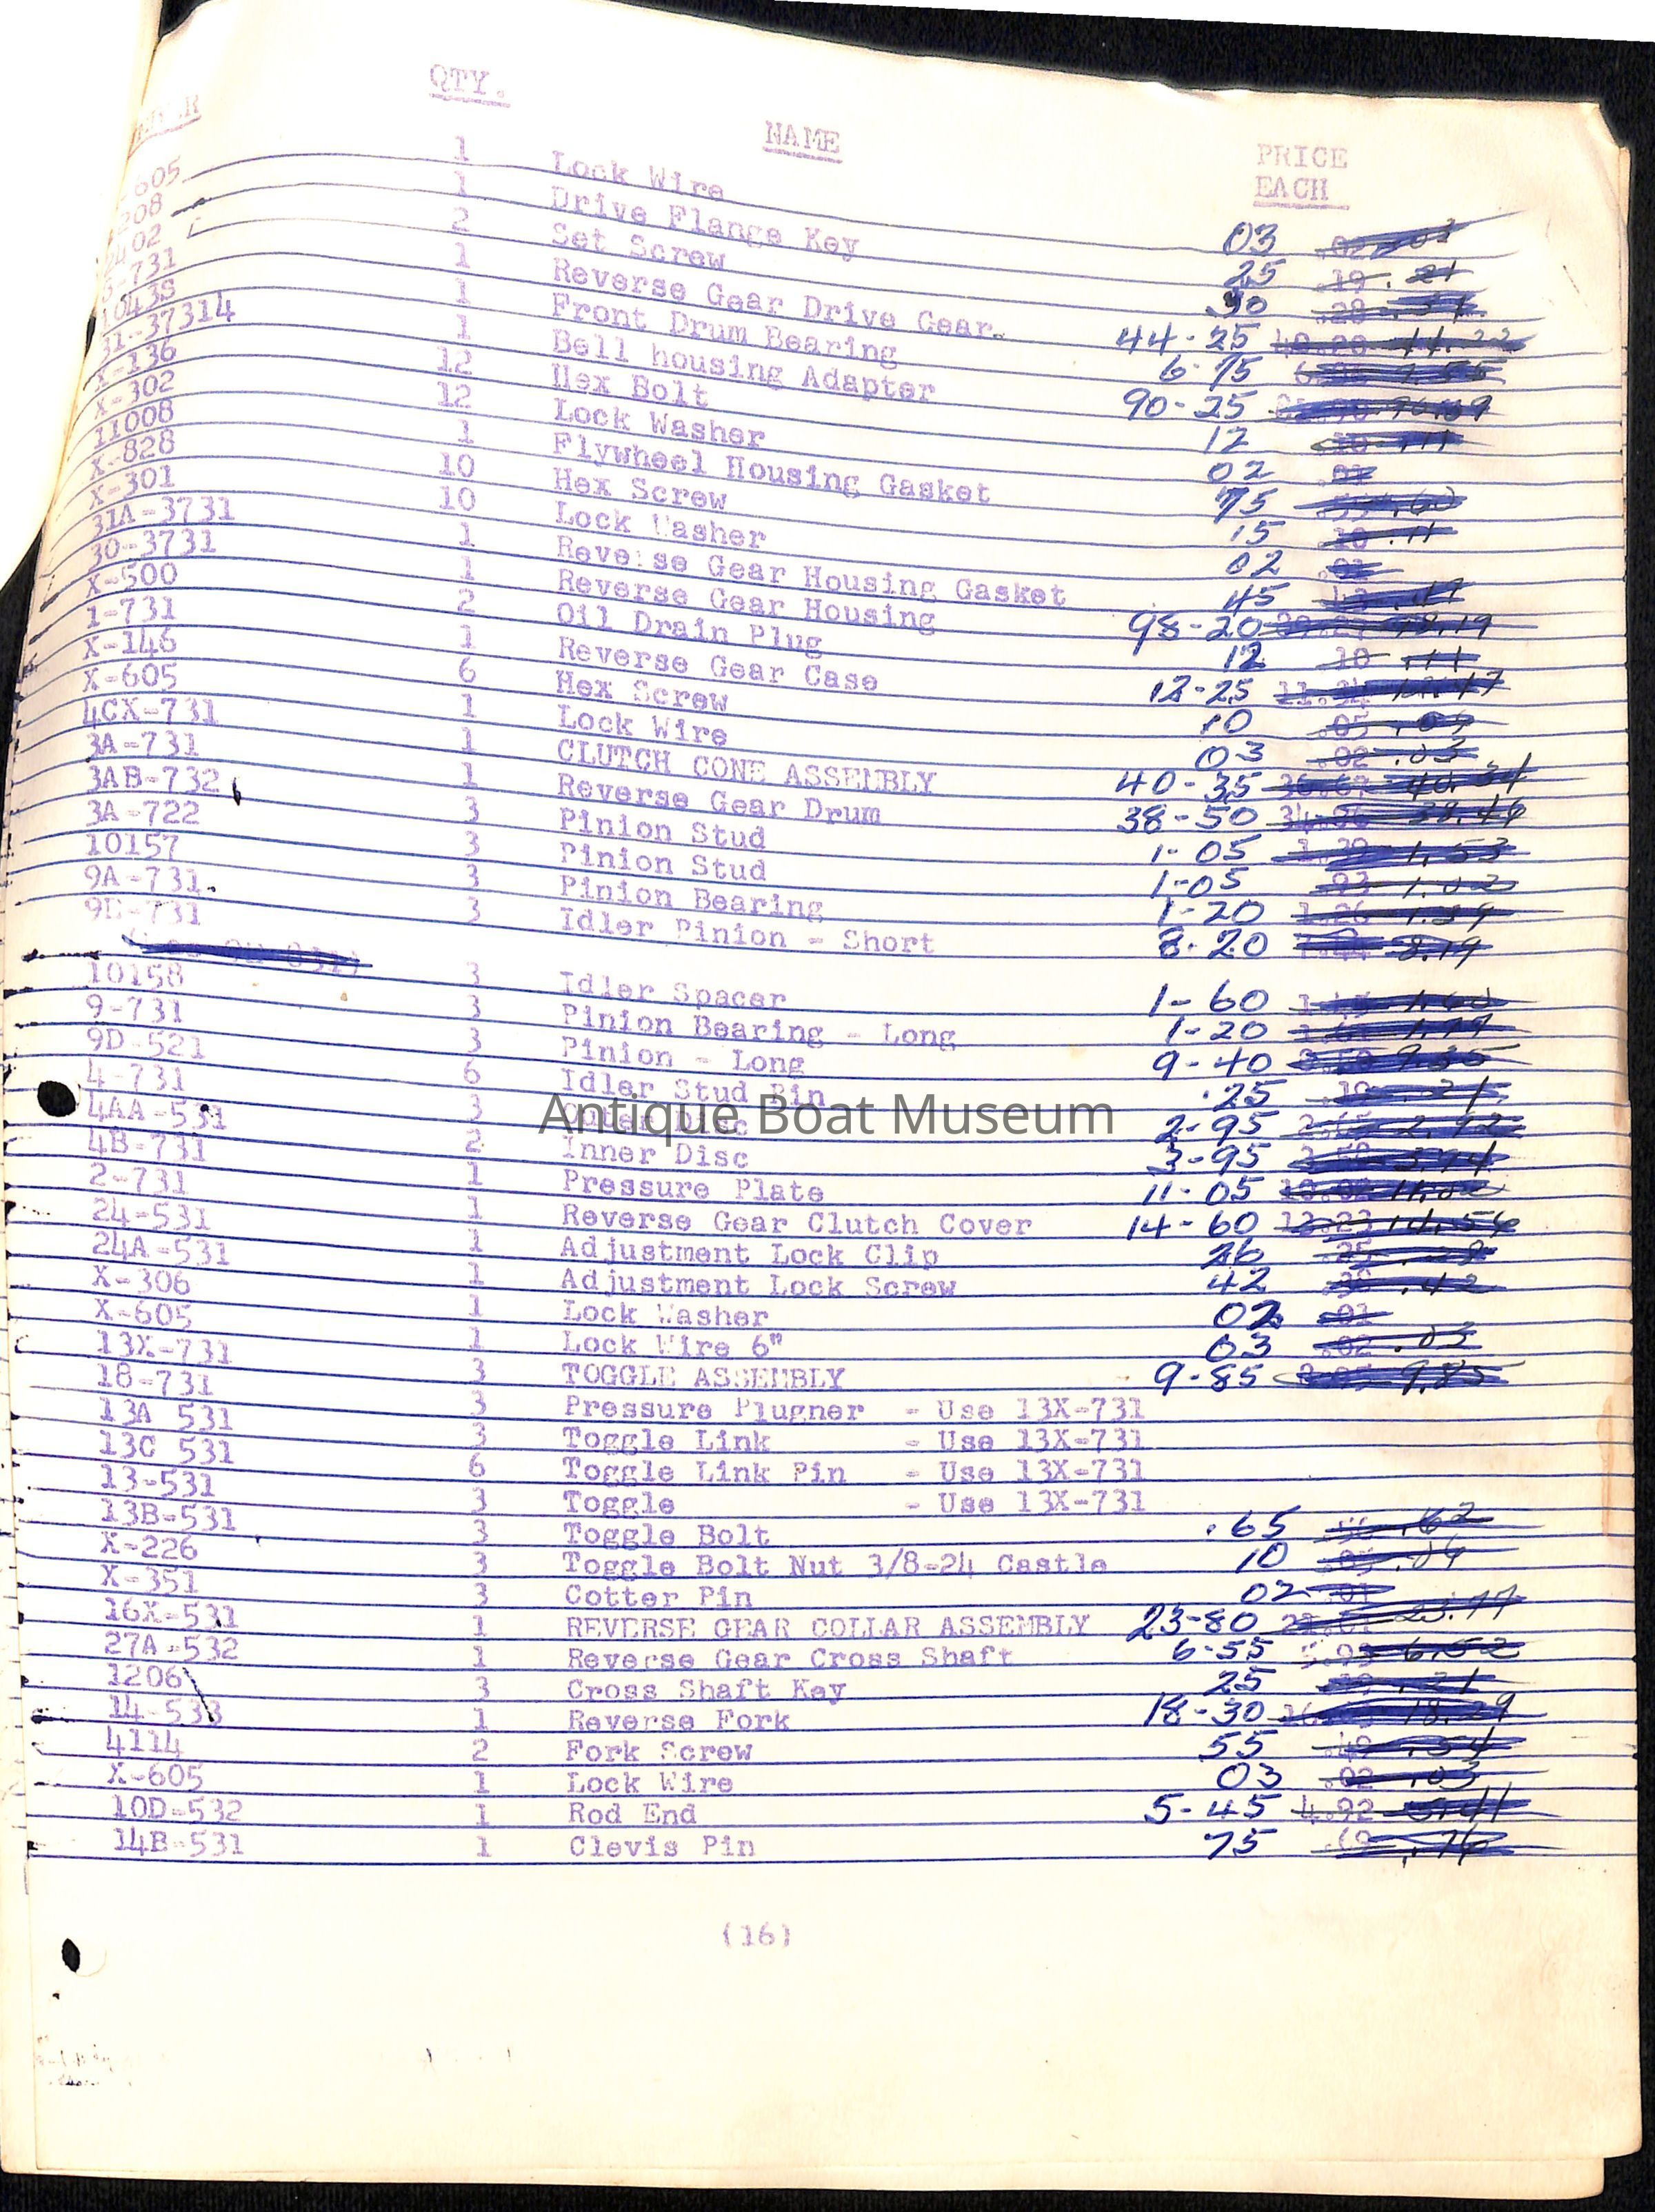 QTY. NAME PRICE
EACH
605 1 Lock Wire 03
208 1 Drive Flange Key 25 .19 .21
402 2 Set Screw 30 .28
-731 1 Reverse Gear Drive Gear. 44-25
1043S 1 Front Drum Bearing 6-75
31-37314 1 Bell housing Adapter 90-25
X-136 12 Hex Bolt 12
X-302 12 Lock Washer 02
11008 1 Flywheel Housing Gasket 75 .60
X-828 10 Hex Screw 15 .10 .11
X-301 10 Lock Washer 02
31A-3731 1 Reverse Gear Housing Gasket 45
30-3731 1 Reverse Gear Housing 98-20
X-500 2 Oil Drain Plug 12 .10 .11
1-731 1 Reverse Gear Case 12-25
X-146 6 Hex Screw 10 .05 .09
X-605 1 Lock Wire 03 .02 .03
4CX-731 1 CLUTCH CONE ASSEMBLY 40-35
3A-731 1 Reverse Gear Drum 38-50
3AB-732 3 Pinion Stud 1-05 1.53
3A-722 3 Pinion Stud 1-05 .93 1.02
10157 3 Pinion Bearing 1-20
9A-731. 3 Idler Pinion - Short 8-20 8.19
9E-731
10158 3 Idler Spacer 1-60
9-731 3 Pinion Bearing - Long 1-20
9D-521 3 Pinion - Long 9-40 9.35
4-731 6 Idler Stud Pin .25 .19 .21
4AA-531 3 Outer Disc 2-95 2.65 2.92
4B-731 2 Inner Disc 3-95
2-731 1 Pressure Plate 11-05
24-531 1 Reverse Gear Clutch Cover 14-60 13.23 14.56
24A-531 1 Adjustment Lock Clip 26 .25
X-306 1 Adjustment Lock Screw 42 .38 .42
X-605 1 Lock Washer 02 .01
13X-731 1 Lock Wire 6" 03 .02 .03
18-731 3 TOGGLE ASSEMBLY 9-85 9.85
13A 531 3 Pressure Plugner - Use 13X-731
13C 531 3 Toggle Link - Use 13X-731
13-531 6 Toggle Link Pin - Use 13X-731
13B-531 3 Toggle - Use 13X-731
X-226 3 Toggle Bolt .65 .62
X-351 3 Toggle Bolt Nut 3/8-24 Castle 10 .05 .09
16X-531 3 Cotter Pin 02 .01
27A-532 1 REVERSE GEAR COLLAR ASSEMBLY 23-80 23.77
1206 1 Reverse Gear Cross Shaft 6-55 6.52
14-533 3 Cross Shaft Key 25 .21
4114 1 Reverse Fork 18-30 18.29
X-605 2 Fork Screw 55 .49 .54
10D-532 1 Lock Wire 03 .02 .03
14B-531 1 Rod End 5-45 4.92 5.41
1 Clevis Pin 75
Antique Boat Museum
(16)